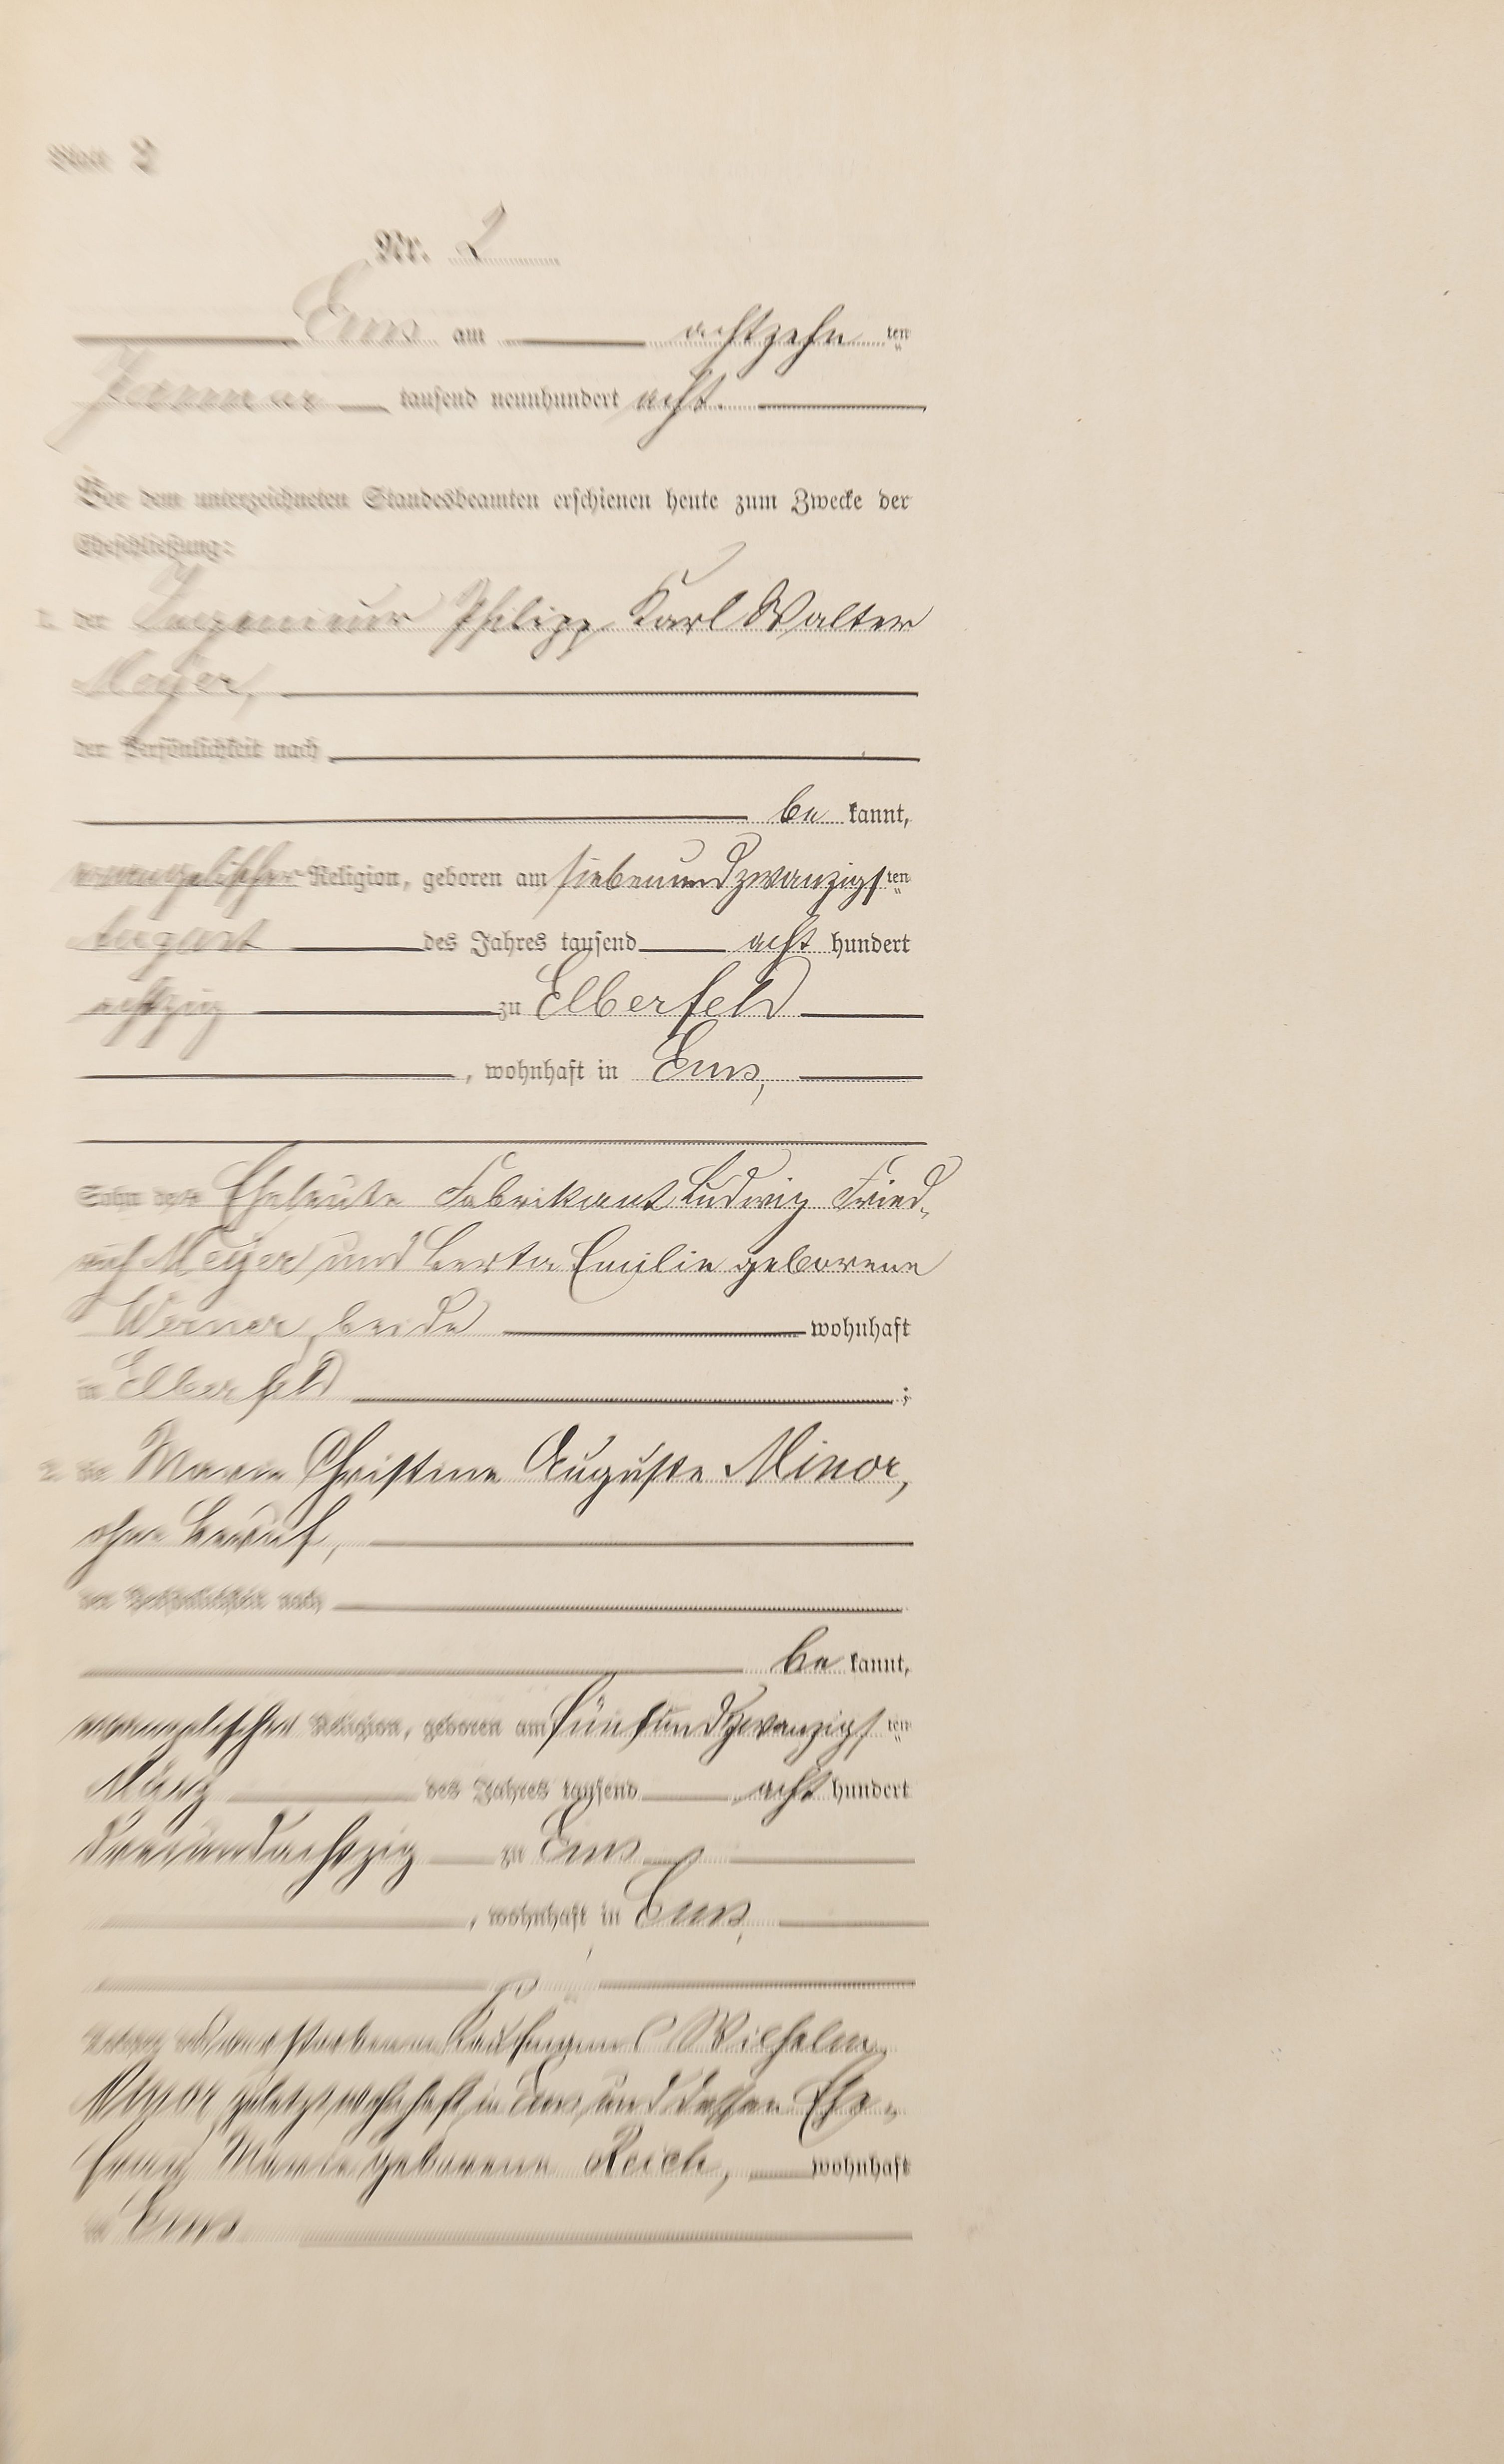 Blatt 2
Nr. 2
Ems am achtzehn ten
Januar tausend neunhundert acht.
Vor dem unterzeichneten Standesbeamten erschienen heute zum Zwecke der
Eheschließung:
1. der Ingenieur Philipp Karl Walter
Meyer,
der Persönlichkeit nach
be kannt,
evangelischer Religion, geboren am siebenundzwanzigs ten
August des Jahres tausend acht hundert
achtzig zu Elberfeld
, wohnhaft in Ems,
Sohn der Eheleute Fabrikant Ludwig Fried-
rich Meyer und Berta Emilie geborene
Werner, beide wohnhaft
in Elberfeld ;
2. die Marie Christine Auguste Minor,
ohne Beruf,
der Persönlichkeit nach
be kannt,
evangelischer Religion, geboren am fünfundzwanzigs ten
März des Jahres tausend acht hundert
dreiundachtzig zu Ems
, wohnhaft in Ems,
verstorbenen Wilhelm
Minor, zuletzt wohnhaft in Ems und dessen Ehe-
frau Marie geborene Reich, wohnhaft
in Ems